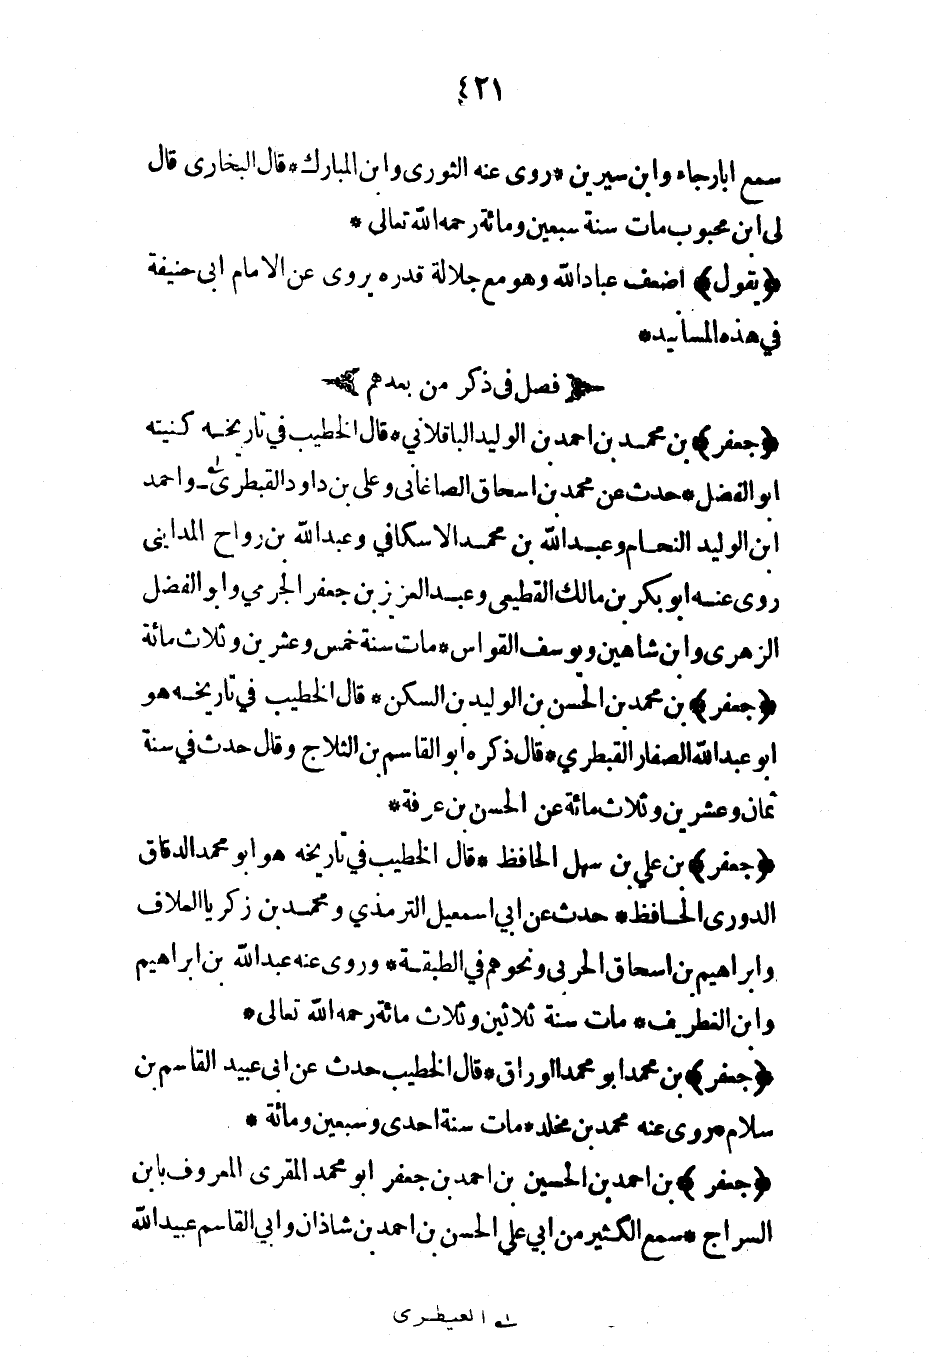 ٤٢١
سمع ابارجاء وابن سيرين *روى عنه الثورى وابن المبارك*قال البخارى قال
لى ابن محبوب مات سنة سبعين ومائة رحمه الله تعالى *
﴿يقول﴾ اضعف عباد الله وهو مع جلالة قدره يروى عن الامام ابى حنيفة
في هذه المسانيد*
﴿ فصل فى ذكر من بعدهم ﴾
﴿جعفر﴾ بن محمد بن احمد بن الوليد الباقلاني*قال الخطيب في تاريخه كنيته
ابو الفضل*حدث عن محمد بن اسحاق الصاغانى وعلى بن داود القبطرى ١ـ واحمد
ابن الوليد النحام وعبد الله بن محمد الاسكافي وعبد الله بن رواح المدايني
روى عنه ابو بكر بن مالك القطيعى وعبد العزيز بن جعفر الجرمي وابو الفضل
الزهرى وابن شاهين ويوسف القواس*مات سنة خمس وعشرين وثلاث مائة
﴿جعفر﴾ بن محمد بن الحسن بن الوليد بن السكن* قال الخطيب في تاريخه هو
ابو عبد الله الصفار القبطري*قال ذكره ابو القاسم بن الثلاج وقال حدث في سنة
ثمان وعشرين وثلاث مائة عن الحسن بن عرفة*
﴿جعفر﴾ بن علي بن سهل الحافظ *قال الخطيب في تاريخه هو ابو محمد الدقاق
الدورى الحافظ* حدث عن ابي اسمعيل الترمذي ومحمد بن زكريا العلاف
وابراهيم بن اسحاق الحربى ونحوهم في الطبقة* وروى عنه عبد الله بن ابراهيم
وابن الغطريف* مات سنة ثلاثين وثلاث مائة رحمه الله تعالى*
﴿جعفر﴾ بن محمد ابو محمد الوراق*قال الخطيب حدث عن ابى عبيد القاسم بن
سلام*روى عنه محمد بن مخلد*مات سنة احدى وسبعين ومائة *
﴿جعفر﴾ بن احمد بن الحسين بن احمد بن جعفر ابو محمد المقرى المعروف بابن
السراج *سمع الكثير من ابي علي الحسن بن احمد بن شاذان وابي القاسم عبيد الله
١ـ العيطرى